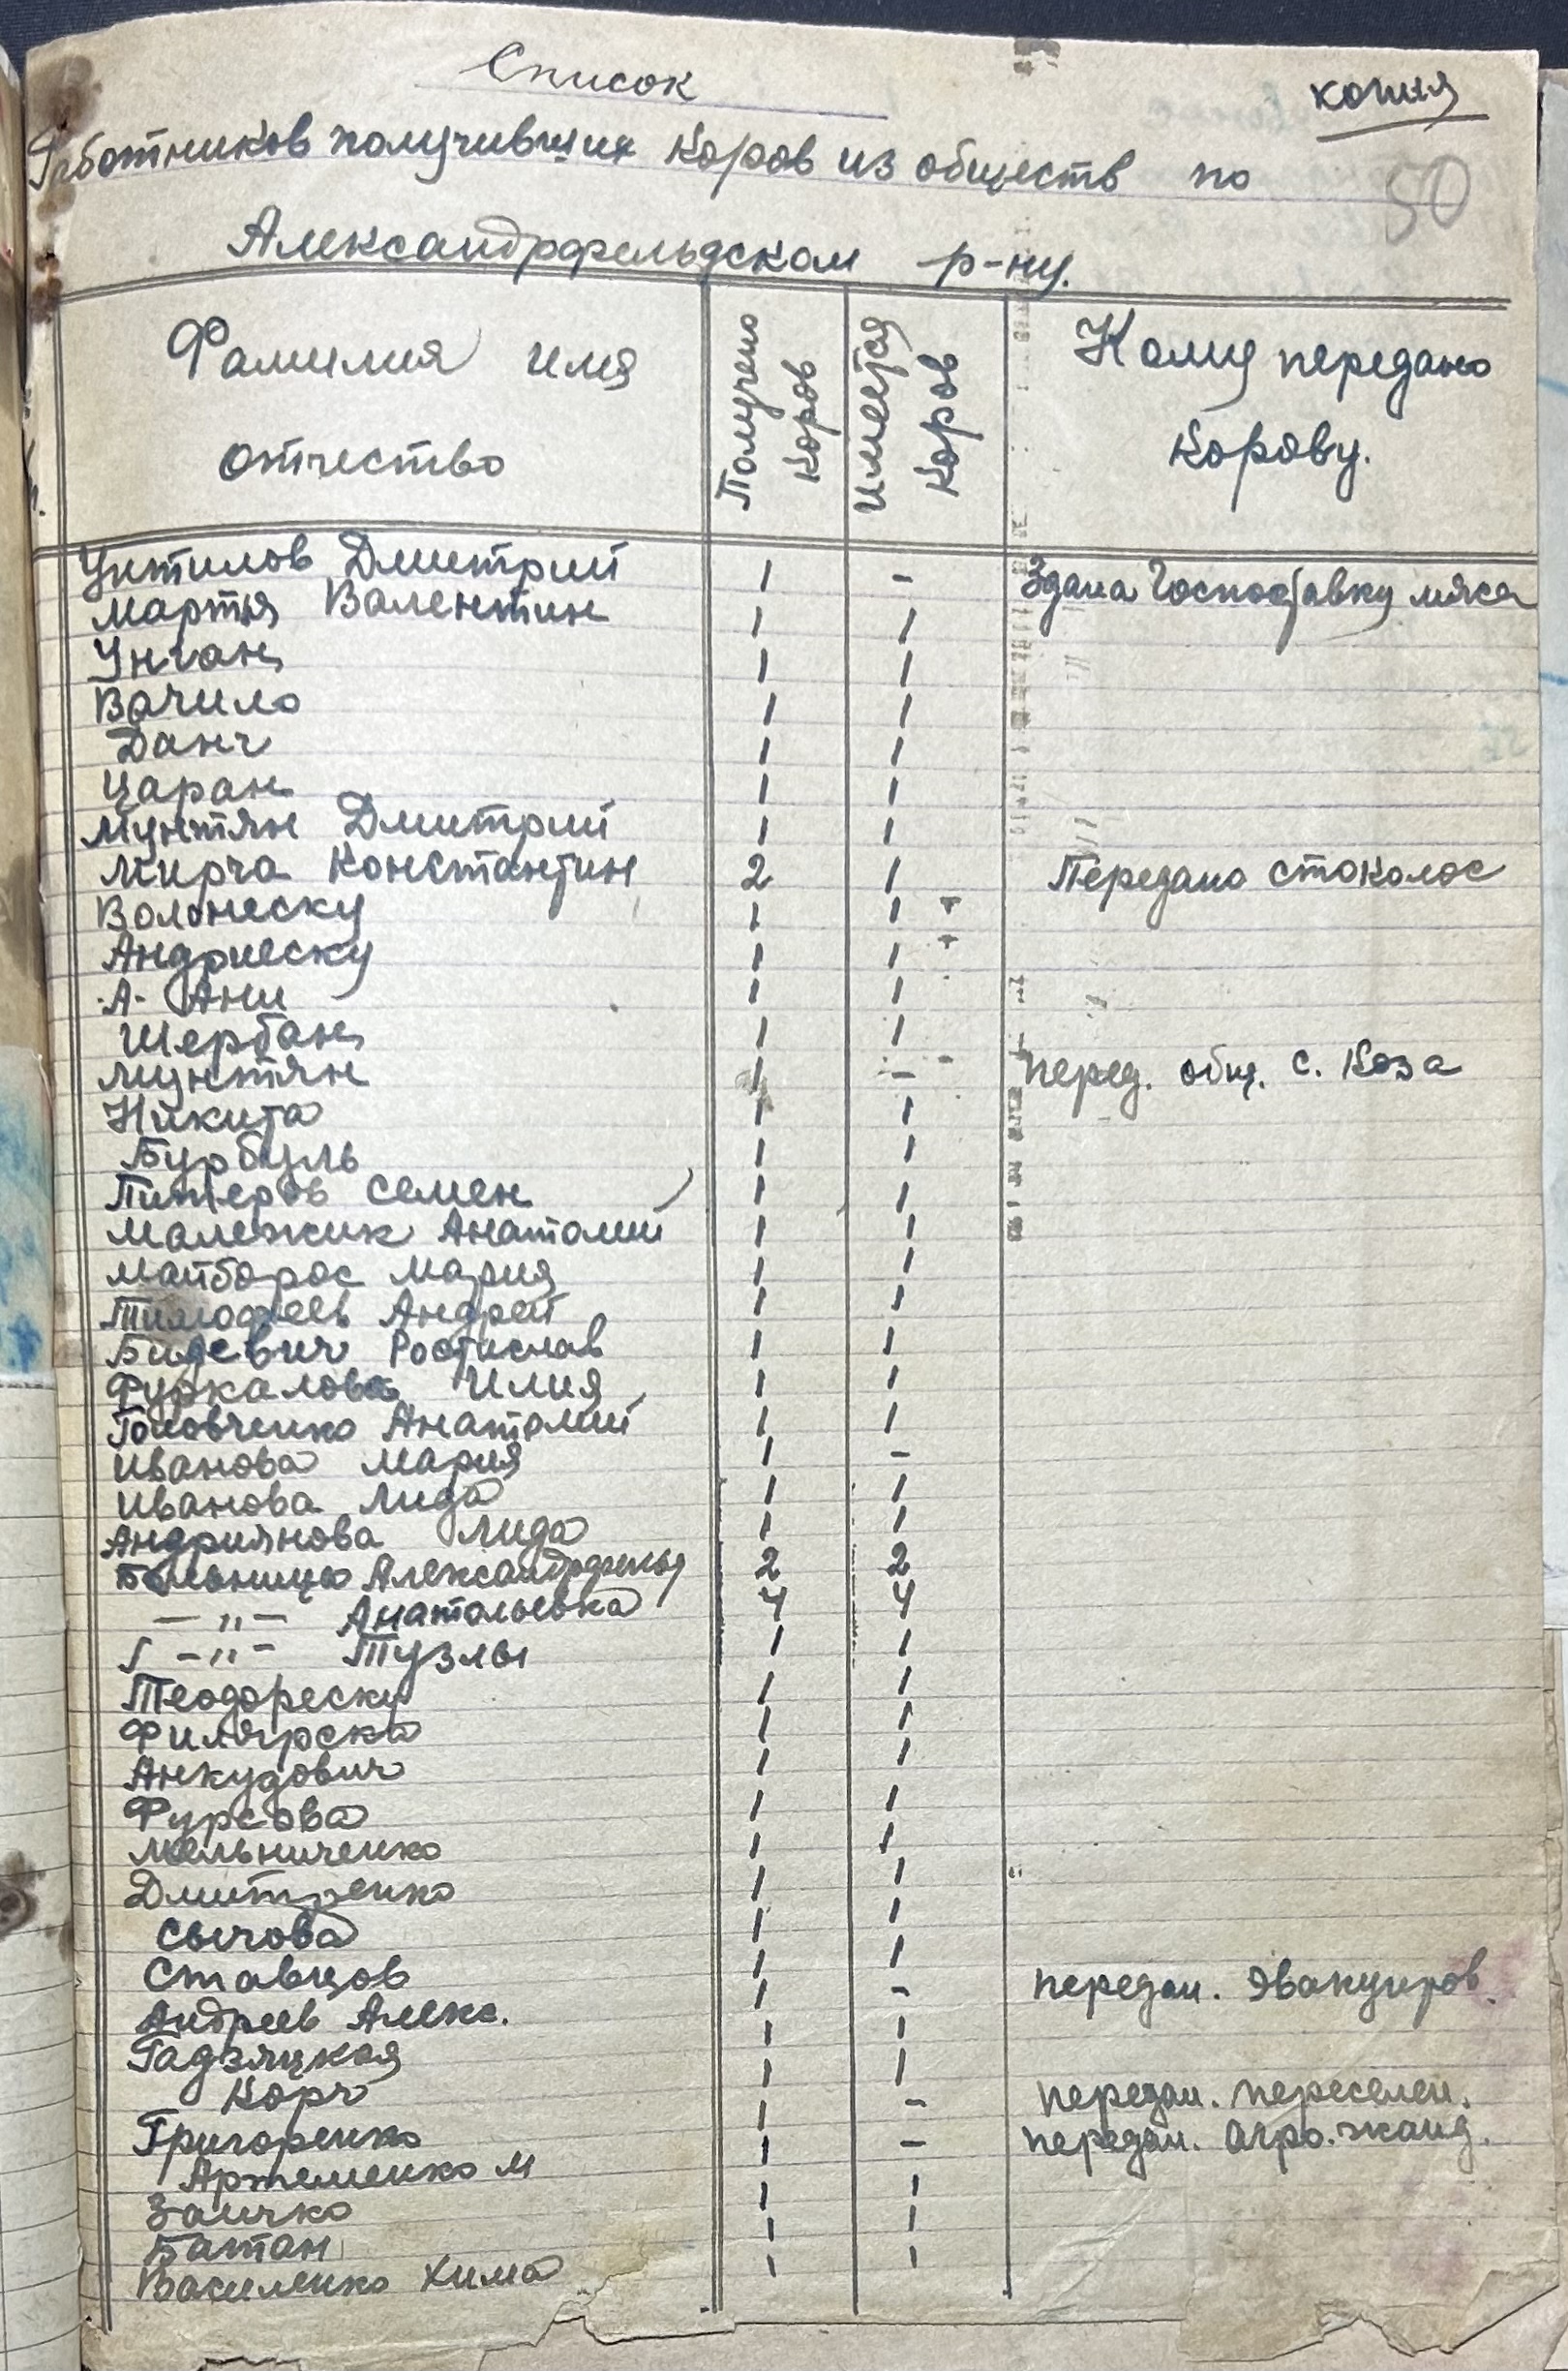 Список
копия
Работников получивших коров из обществ по
50
Александрфельдском р-ну.
Фамилия имя отчество
Получено коров
Имеется коров
Кому передано корову.
Унтилов Дмитрий 1 - Здана Госпоставку мяса
Мартя Валентин 1 1
Унган 1 1
Вачило 1 1
Данч 1 1
Царан 1 1
Мунтян Дмитрий 1 1
Мирча Константин 2 1 Передано стоколос
Волонеску 1 1
Андриеску 1 1
А- Ани 1 1
Шербан 1 1
Мунтян 1 - перед. общ. с. Коза
Никита 1 1
Бурбуль 1 1
Питеров Семен 1 1
Малежик Анатолий 1 1
Майборос Мария 1 1
Тимофеев Андрей 1 1
Бидевич Ростислав 1 1
Фуркалова Илия 1 1
Головченко Анатолий 1 1
Иванова Мария 1 -
Иванова Лида 1 1
Андриянова Лида 1 1
Больницы Александрфельд 2 2
-"- Анатольевка 4 4
-"- Тузлы 1 1
Теодореску 1 1
Филярска 1 1
Анкудович 1 1
Фурсова 1 1
Мельниченко 1 1
Дмитренко 1 1
Сычова 1 1
Ставцов 1 1
Андреев Алекс. 1 - передан. Эвакуиров.
Гадзяцкая 1 1
Корч 1 1
Григоренко 1 - передан. переселен.
Артеменко М 1 - передан. Агро.жанд.
Заичко 1 1
Батан 1 1
Василенко Хима 1 1